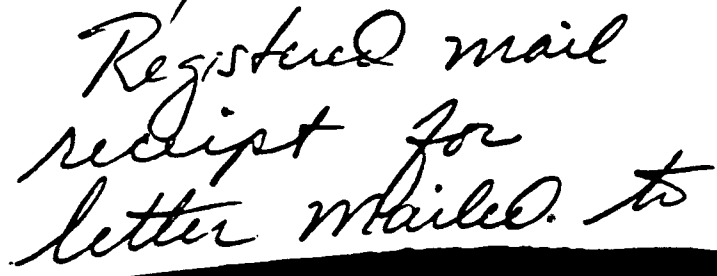 Registered mail
receipt for
letter mailed. to